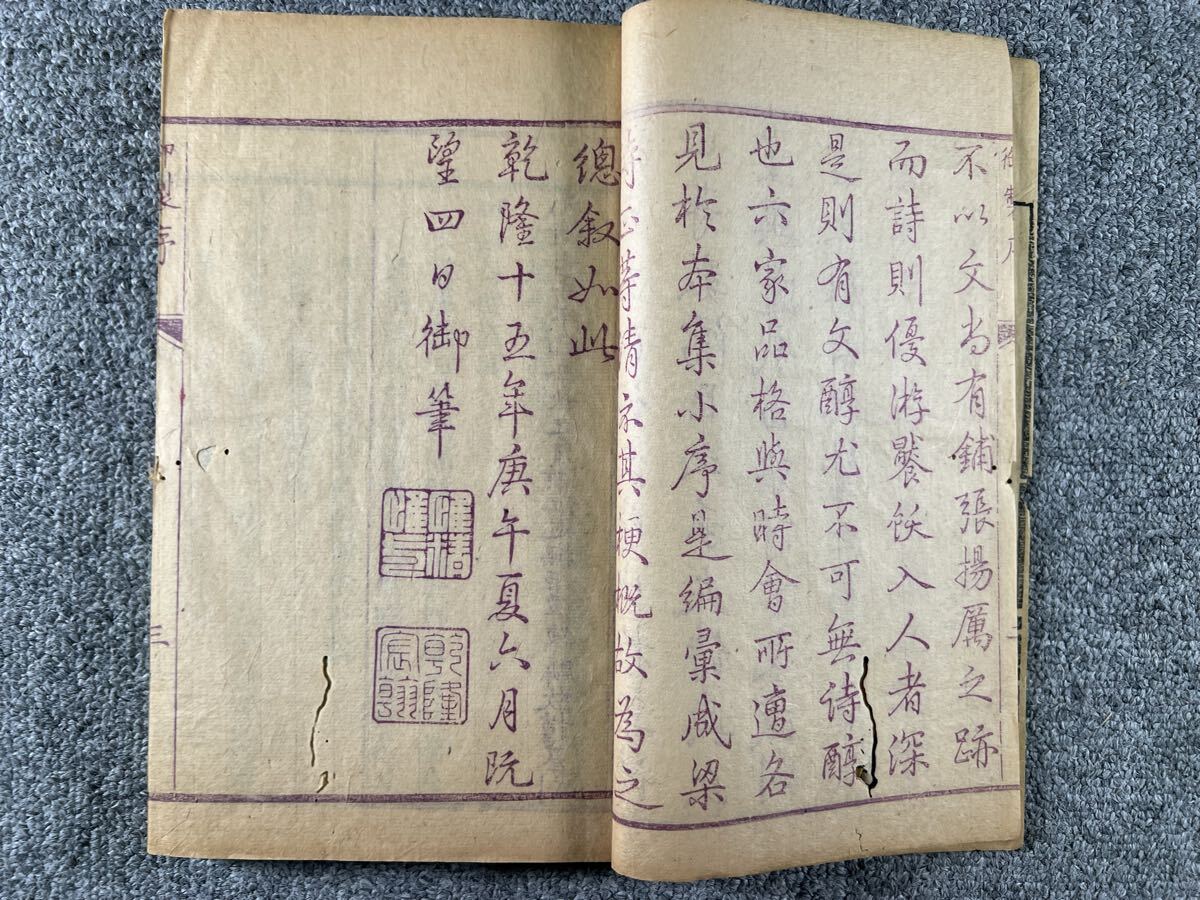 御製序
不以文尚有鋪張揚厲之跡
而詩則優游饜飫入人者深
是則有文醇尤不可無詩醇
也六家品格與時會所遭各
見於本集小序是編彙成梁
詩正等請示其梗概故為之
總叙如此
乾隆十五年庚午夏六月既
望四日御筆
惟精惟一
乾隆宸翰
御製序
三